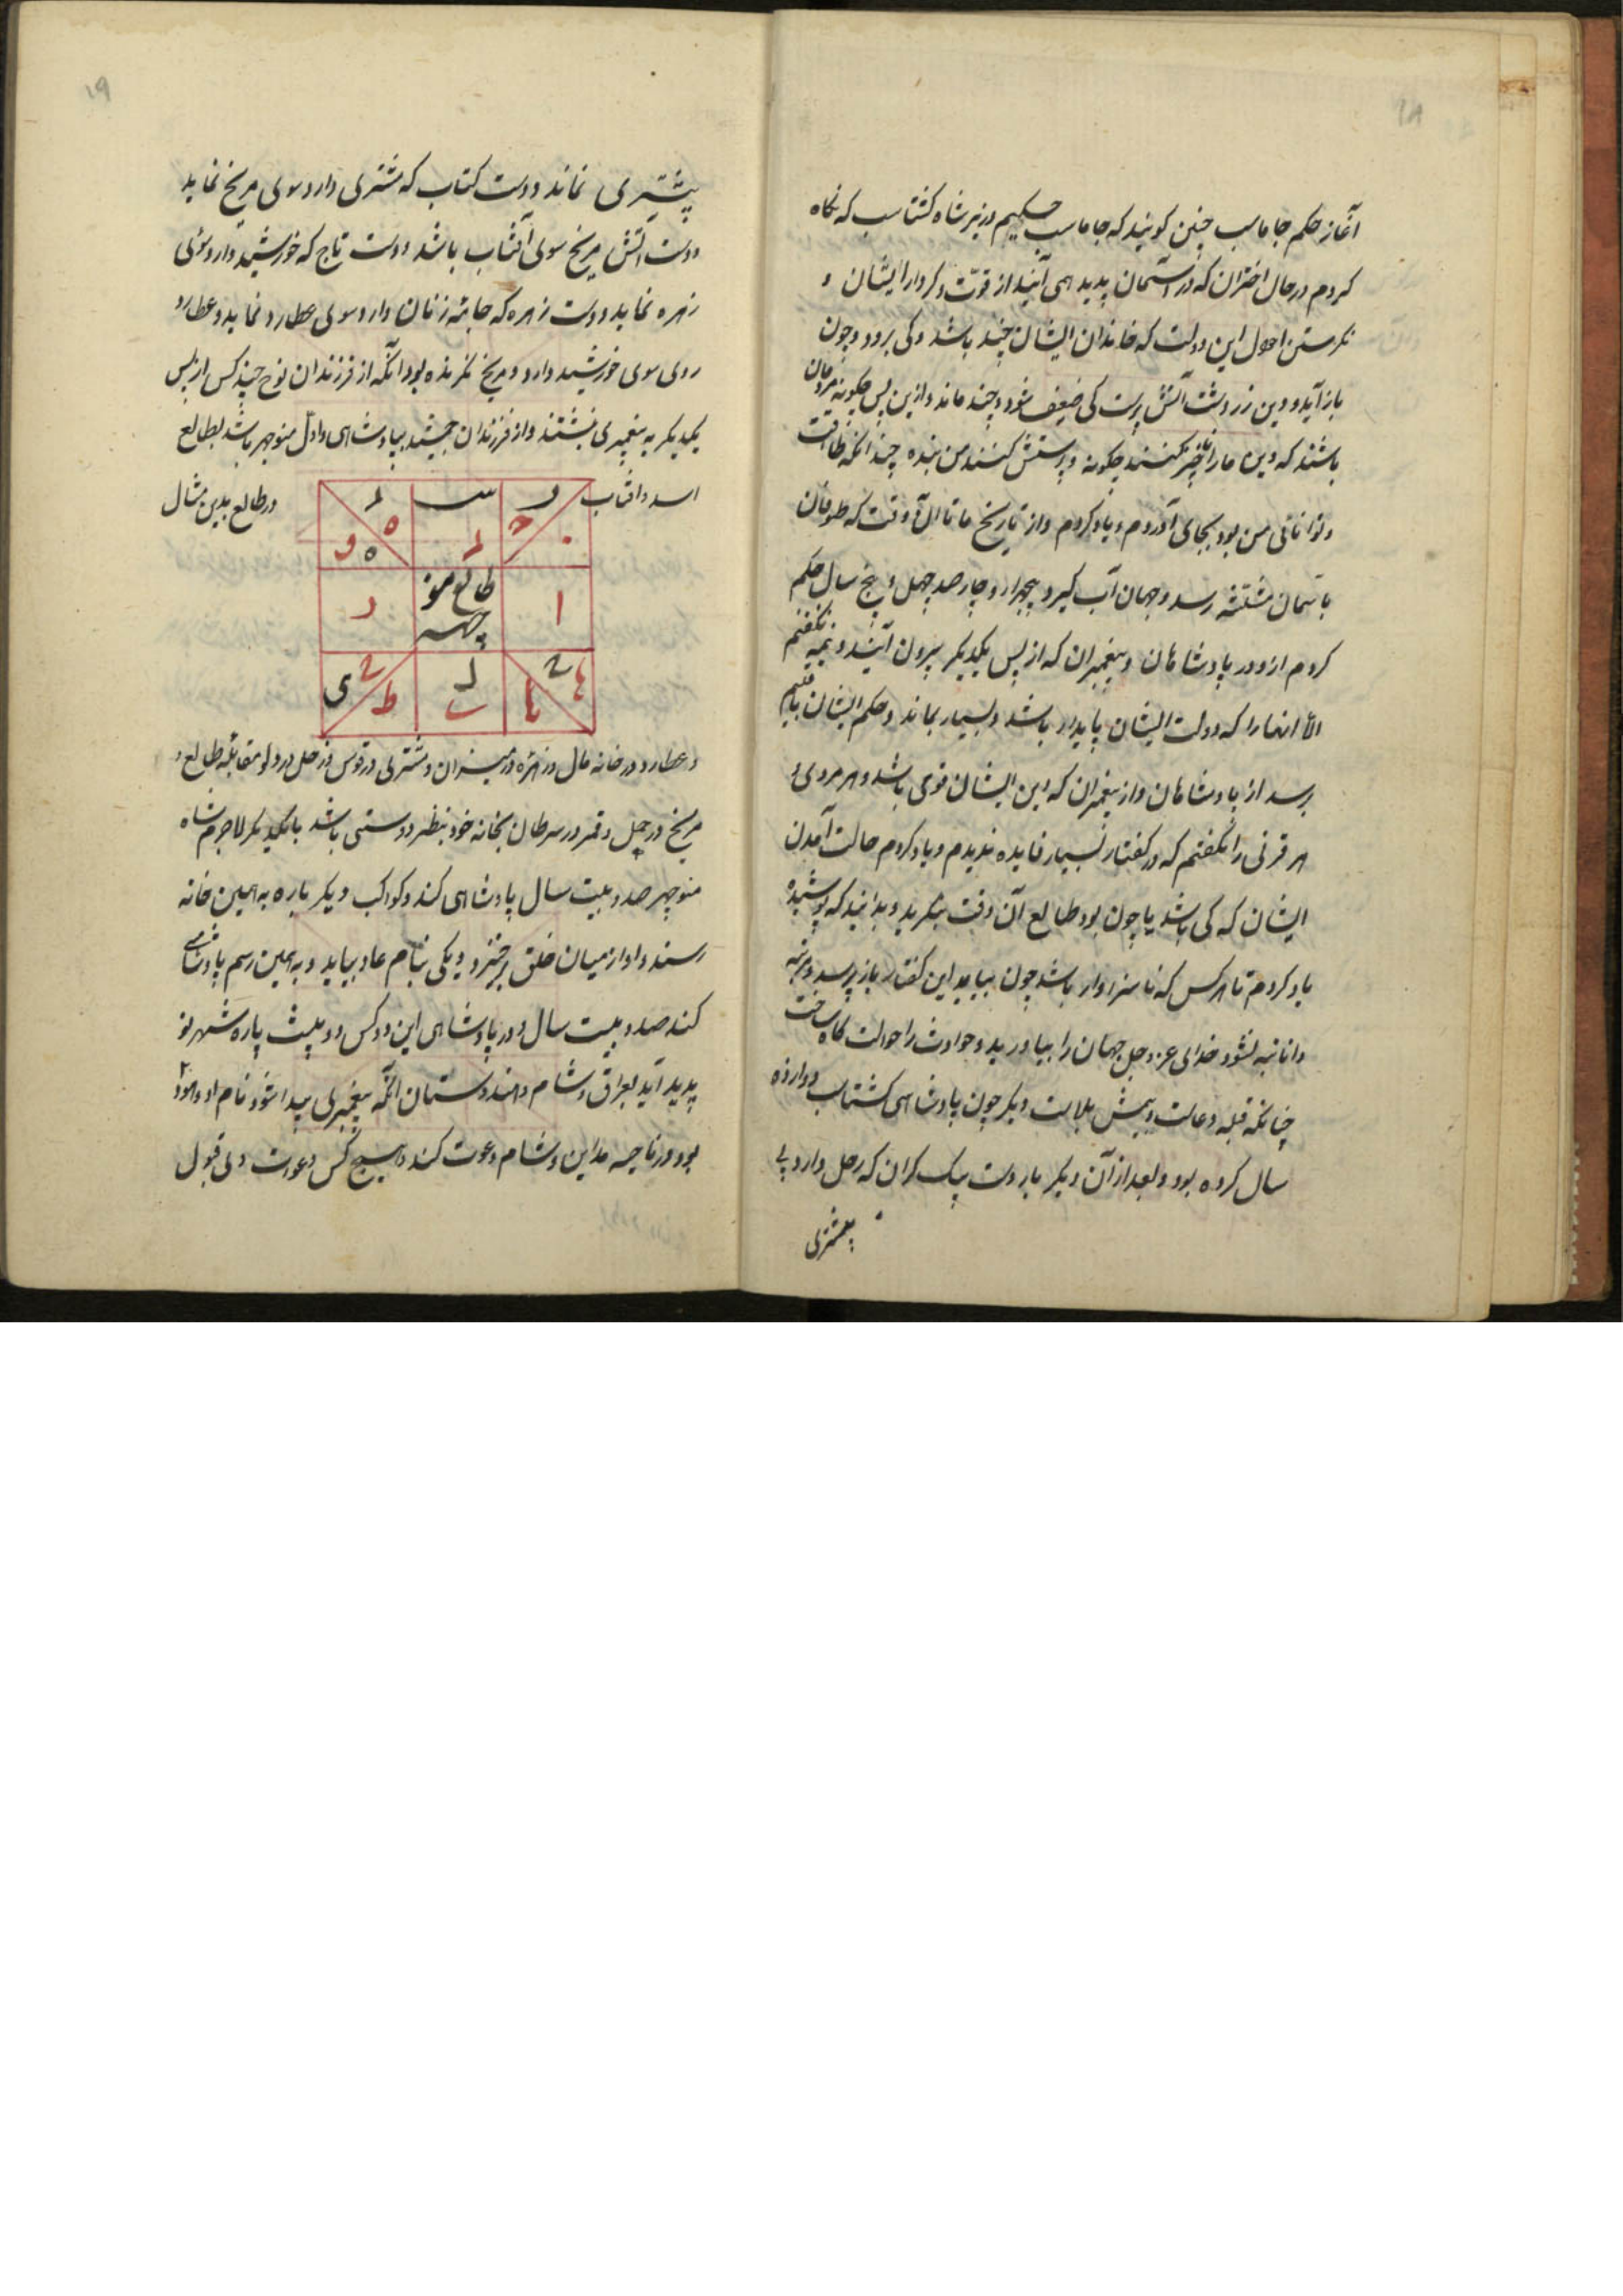 ۱۸
آغاز حکم جاماسب چنین کویند که جاماسب حکیم وزیر شاه کشتاسب که نکاه
کردم در حال اختران که در آسمان پدید همی آیند از قوّت و کردار ایشان و
نکرستن احول این دولت که خاندان ایشان چند باشد و کی برود و چون
باز آید و دین زردشت آتش پرست کی ضعیف شود و چند ماند و ازین پس چکونه مردمان
باشند که دین مارا کنند چکونه و پرستش کنند من بنده چندانکه طاقت
و توانائی من بود بجای آوردم و یاد کردم و از تاریخ ما تا آن وقت که طوفان
باسمان رسد و جهان آب کیرد پنجهزار و چارصد چهل و پنج سال حکم
کردم از دور پادشاهان و پیغمبران که از پس یکدیکر بیرون آیند و همه نکفتم
الا آنها را که دولت ایشان پایدار باشد و بسیار بماند و حکم ایشان
برسد از پادشاهان و از پیغمبران که دین ایشان قوی باشد و هر مردی و
هر قرنی را نکفتم که در کفتار بسیار فایده ندیدم و یاد کردم حالت آمدن
ایشان که کی باشد یا چون بود طالع آن وقت بنکرید و بدانید که پوشیده
یاد کردم تا هرکس که ناسزاوار باشد چون بیابد این کفتار باز پرسد و مرتبه
دانا نبه نشود خدای عز وجل جهان را بیاورید و حوادث را حوالت کاه ساخت
چنانکه قبله دعاست و پیش بلاست دیکر چون پادشاهی کشتاسب دوازده
سال کرده بود و بعد از آن دیکر بار دست پیک کران که زحل دارد
بمشتری
۱۹
بمشتری نماند و دست کتاب که مشتری دارد سوی مریخ نماید
دست آتش مریخ سوی آفتاب باشد و دست تاج که خورشید دارد سوی
زهره نماید و دست زهره که جامه زنان دارد سوی عطارد نماید و عطارد
روی سوی خورشید دارد و مریخ نکرنده بود آنکه از فرزندان نوح چند کس از پس
یکدیکر به پیغمبری بنشستند و از فرزندان جمشید بپادشاهی و اول منوچهر باشد بطالع
اسد و آفتاب در طالع بدین مثال
طالع منو
چهر
و عطارد در خانه مال و زهره در میزان و مشتری در قوس و زحل در دلو مقابله طالع و
مریخ در حمل و قمر در سرطان بخانه خود بنظر دوستی باشد با یکدیکر لاجرم شاه
منوچهر صد و بیست سال پادشاهی کند و کواکب دیکر باره به همین خانه
رسند و او از میان خلق برخیزد و یکی بنام عاد بیاید و به همین رسم پادشاهی
کند صد و بیست سال و در پادشاهی این دو کس دو بیست پاره شهر نو
پدید آید بعراق و شام و هندوستان آنکه پیغمبری پیدا شود نام او هود
بود و در ناحیه مداین و شام دعوت کند و هیچ کس دعوت وی قبول